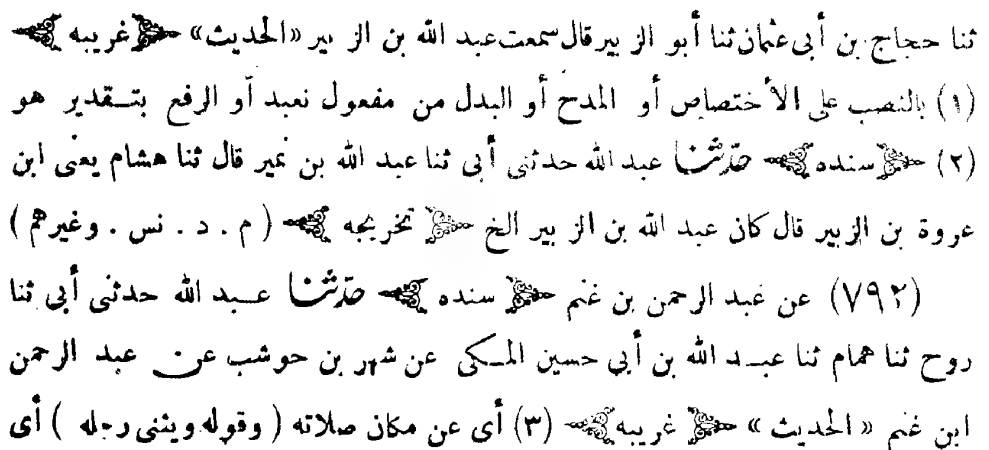 ثنا حجاج بن أبى عثمان ثنا أبو الزبير قال سمعت عبد الله بن الزبير «الحديث» ﴿غريبه﴾
(١) بالنصب على الأختصاص أو المدح أو البدل من مفعول نعبد أو الرفع بتقدير هو
(٢) ﴿سنده﴾ حدثنا عبد الله حدثنى أبى ثنا عبد الله بن نمير قال ثنا هشام يعنى ابن
عروة بن الزبير قال كان عبد الله بن الزبير الخ ﴿تخريجه﴾ (م . د . نس . وغيرهم)
(٧٩٢) عن عبد الرحمن بن غنم ﴿سنده﴾ حدثنا عبد الله حدثنى أبى ثنا
روح ثنا همام ثنا عبد الله بن أبي حسين المكى عن شهر بن حوشب عن عبد الرحمن
ابن غنم «الحديث» ﴿غريبه﴾ (٣) أى عن مكان صلاته (وقوله ويثنى رجله) أى